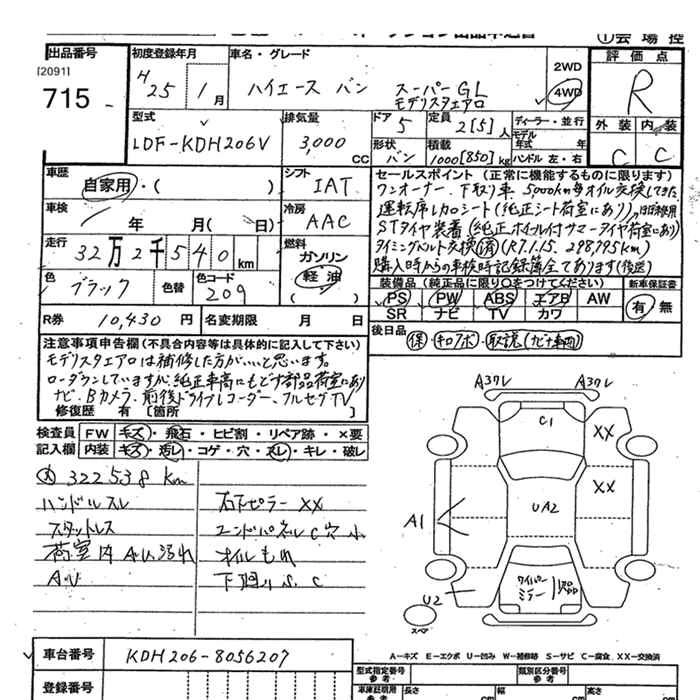 ①会場控
出品番号
[2091]
715
初度登録年月
H25年1月
車名・グレード
ハイエース バン スーパーGL
モデリスタエアロ
2WD
4WD
評価点
R
外装 内装
C C
型式
LDF-KDH206V
排気量
3,000 CC
ドア 5
定員 2[5]人
ディーラー・並行
モデル
年式 年
形状 バン
積載 1000[850]kg
ハンドル 左・右
車歴
自家用・( )
シフト
IAT
車検
年 月(日)
冷房
AAC
走行
32万2千540km
燃料
ガソリン
軽油
( )
色
ブラック
色替
色コード
209
R券 10,430円
名変期限 月 日
セールスポイント(正常に機能するものに限ります)
ワンオーナー、下取り車 5000km毎オイル交換してきた
運転席レカロシート(純正シート荷室にあり)
STタイヤ装着(純正ホイル付サマータイヤ荷室にあり)
タイミングベルト交換(済)(R7.1.15. 298795km)
購入時からの車検時記録簿全てあります(後送)
装備品(純正品に限り○をつけてください)
新車保証書
PS PW ABS エアB AW
SR ナビ TV カワ
有・無
後日品
保・キロアポ・取説(ナビ車両)
注意事項申告欄(不具合内容等は具体的に記入して下さい)
モデリスタエアロは補修した方がいいと思います。
ローダウンしていますが、純正車高にもどす部品荷室にあり
ナビ、Bカメラ、前後ドライブレコーダー、フルセグTV
修復歴 有 [箇所
検査員 FW キズ・飛石・ヒビ割・リペア跡・×要
記入欄 内装 キズ・汚レ・コゲ・穴・スレ・キレ・破レ
322538km
ハンドルスレ
スタットレス
荷室内AU汚れ
AU
右Fピラー XX
エンドパネルC穴小
オイルもれ
下廻りS、C
A37レ A37レ
C1
XX
XX
A1
UA2
ワイパー
ミラー
U2
スペア
A−キズ E−エクボ U−凹み W−補修跡 S−サビ C−腐食 XX−交換済
車台番号 KDH206-8056207
登録番号
型式指定番号
参考
類別区分番号
参考
車庫証明用
参考
長さ cm 幅 cm 高さ cm